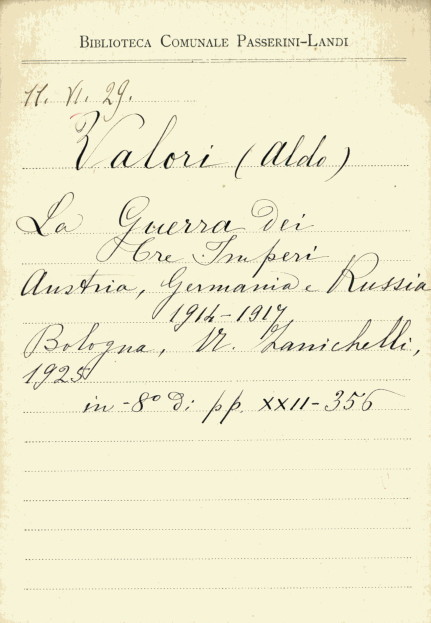 BIBLIOTECA COMUNALE PASSERINI-LANDI
11. VI. 29.
Valori (Aldo)
La Guerra dei
Tre Imperi
Austria, Germania e Russia
1914-1917
Bologna, N. Zanichelli,
1925
in -8º di pp. XXII-356